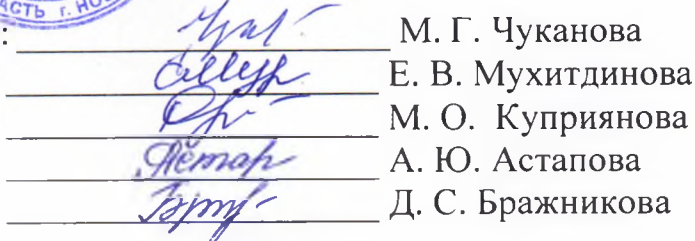 АСТЬ г. НОВ
: М. Г. Чуканова
Е. В. Мухитдинова
М. О. Куприянова
А. Ю. Астапова
Д. С. Бражникова